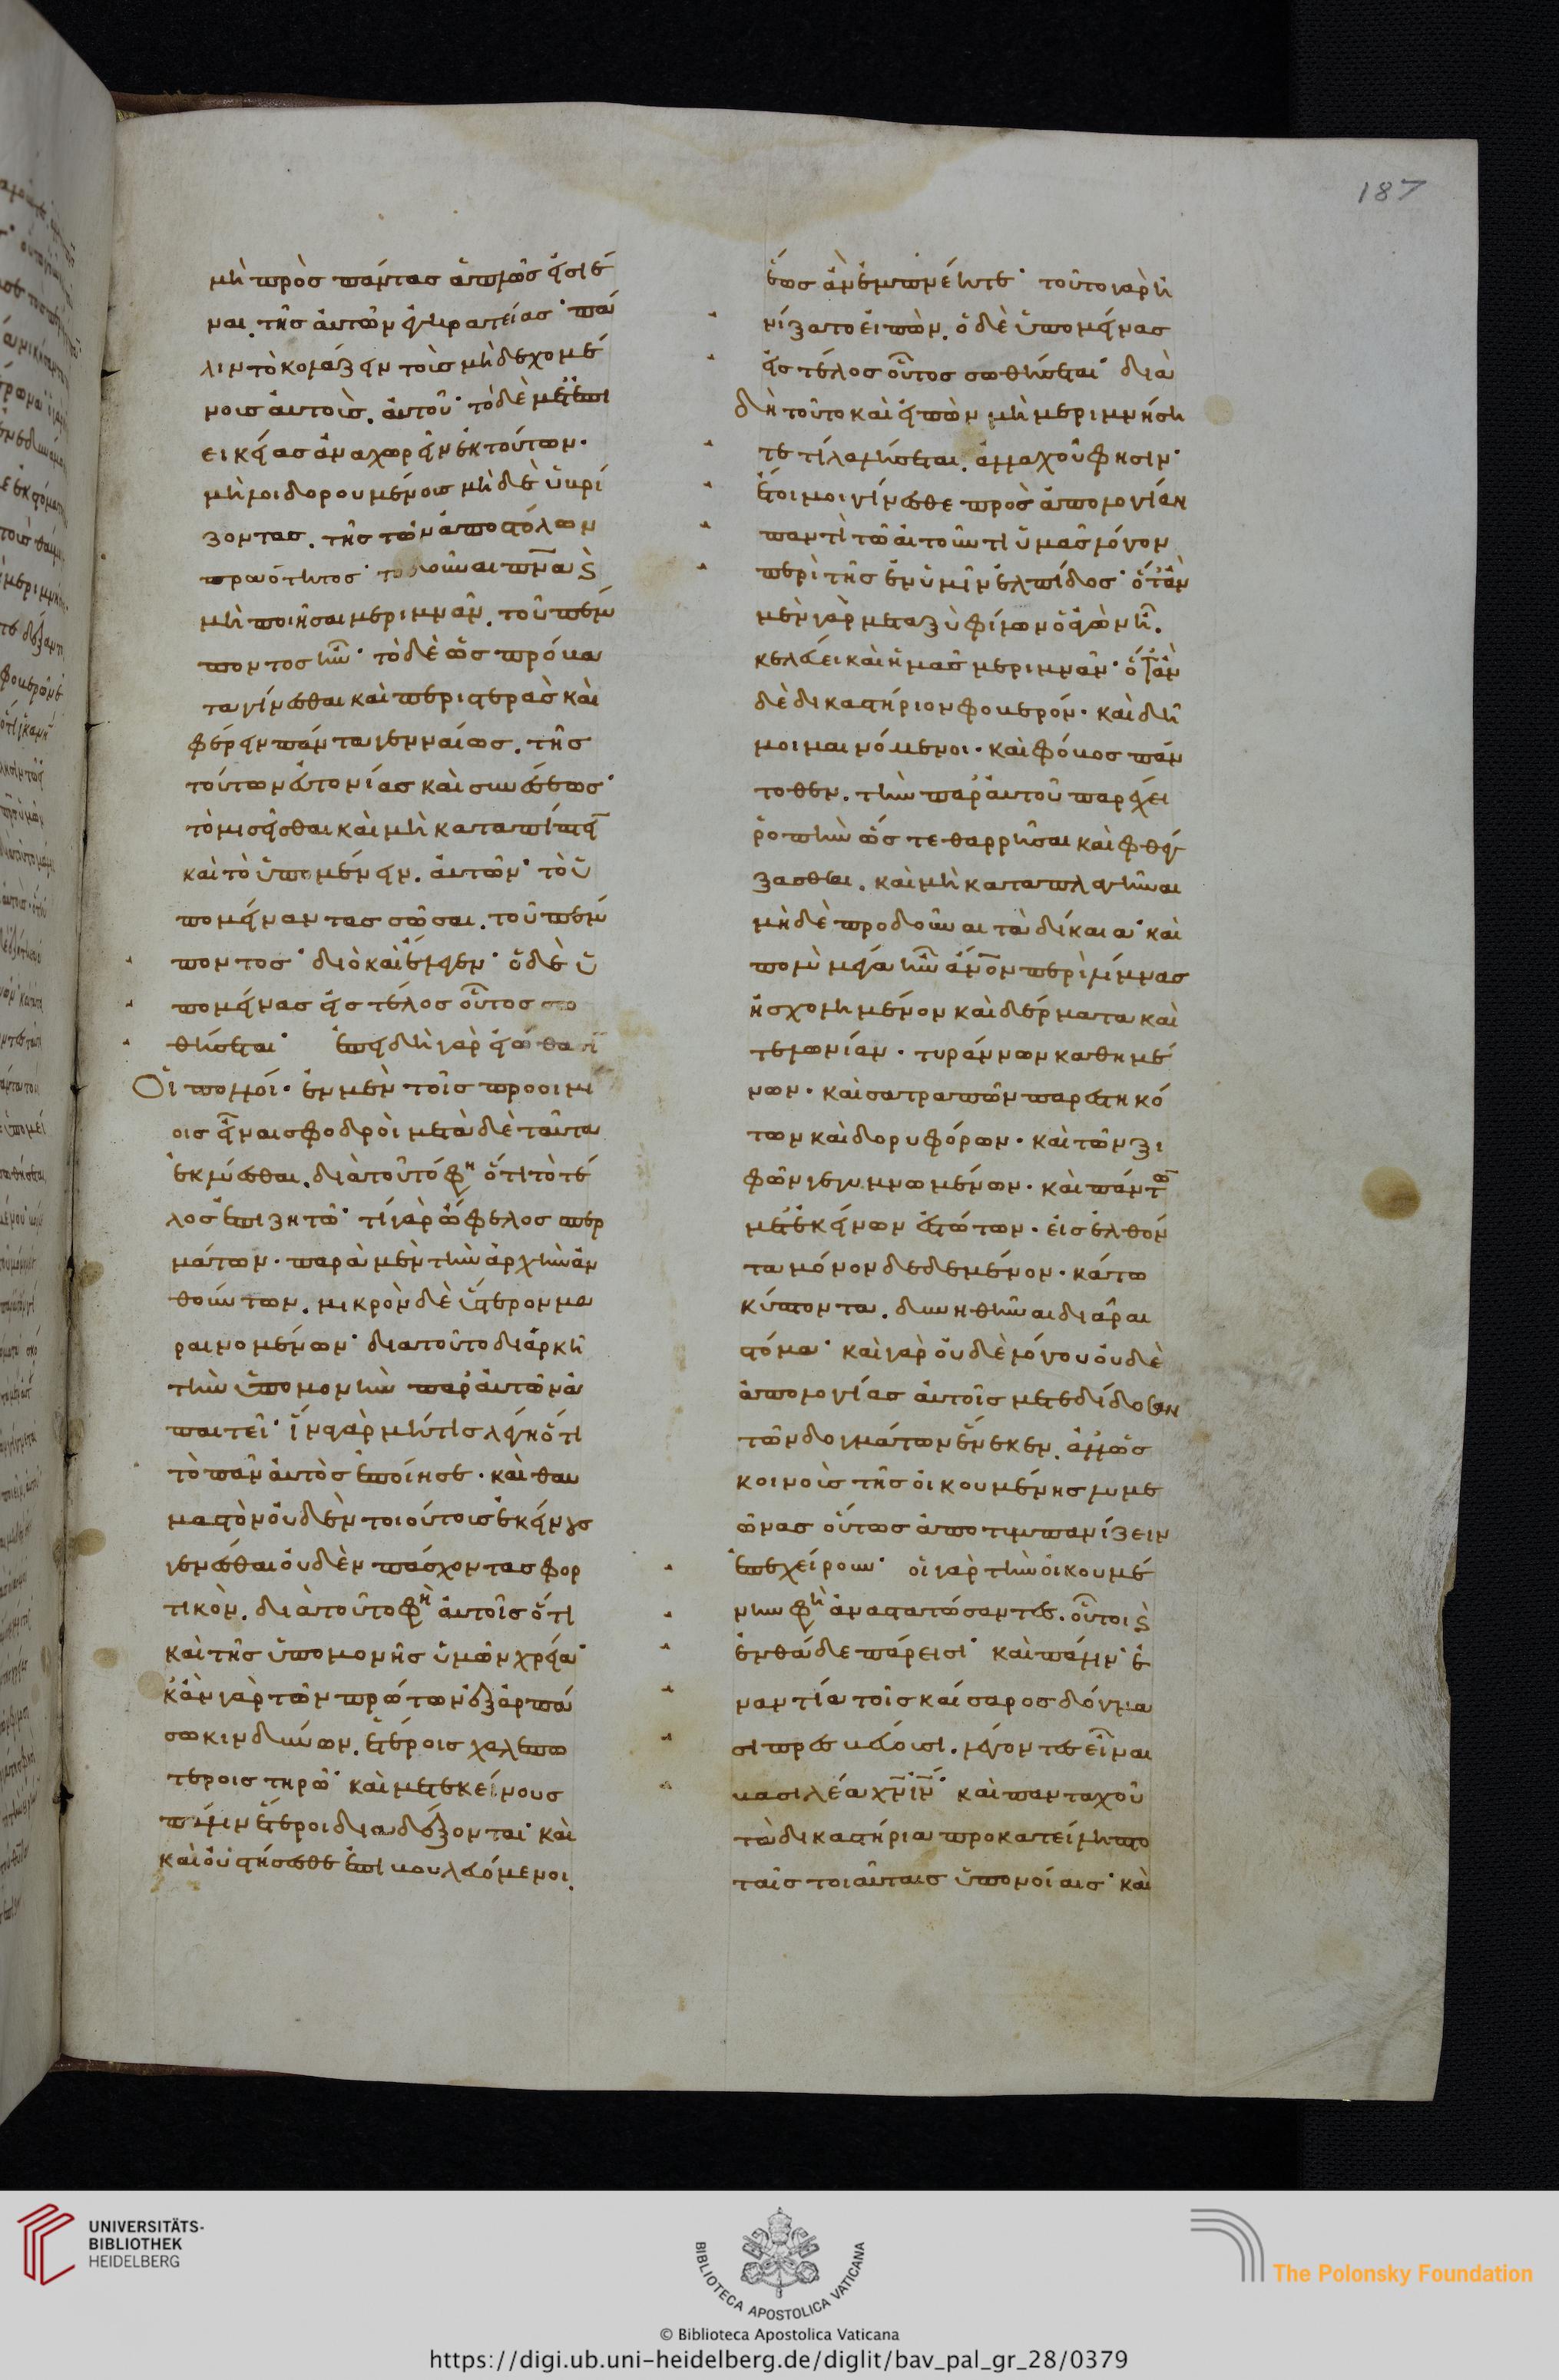 μὴ πρὸς πάντας ἁπλῶς εἰσιέ
ναι, τῆς αὐτῶν ἐγκρατείας· πά
λιν τὸ κολάζειν τοῖς μὴ δεχομέ
νοις αὐτοῖς, αὐτοῦ· τὸ δὲ μετ' ἐπι
εικείας ἀναχωρεῖν ἐκ τούτων·
μὴ λοιδορουμένοις μὴ δὲ ὑβρί
ζοντας, τῆς τῶν ἀποστόλων
πραότητος· τὸ δοῦναι πν̅α ϗ
μὴ ποιῆσαι μεριμνᾶν, τοῦ πέμ
ποντος ἦν· τὸ δὲ ὡς πρόβα
τα γίνεσθαι καὶ περιστερὰς καὶ
φέρειν πάντα γενναίως, τῆς
τούτων εὐτονίας καὶ συνέσεως·
τὸ μισεῖσθαι καὶ μὴ καταπίπτει̅
καὶ τὸ ὑπομένειν, αὐτῶν· τὸ ὑ
πομείναντας σῶσαι, τοῦ πέμ
ποντος· διὸ καὶ ἔλεγεν· ὁ δὲ ὑ
πομείνας εἰς τέλος οὗτος σω
θήσεται· ἐπειδὴ γὰρ εἰώθασι̅
Οἱ πολλοί· ἐν μὲν τοῖς προοιμί
οις εἶναι σφοδροὶ μετὰ δὲ ταῦτα
ἐκλύεσθαι, διὰ τοῦτό φη ὅτι τὸ τέ
λος ἐπιζητῶ· τί γὰρ ὄφελος σπερ
μάτων· παρὰ μὲν τὴν ἀρχὴν ἀν
θούντων, μικρὸν δὲ ὕστερον μα
ραινομένων· διατοῦτο διαρκῆ
τὴν ὑπομονὴν παρ' αὐτῶν ἀ
παιτεῖ· ἵνα γὰρ μή τις λέγη ὅτι
τὸ πᾶν αὐτὸς ἐποίησε· καὶ θαυ
μαστὸν οὐδὲν τοιούτους ἐκείνους
γενέσθαι οὐδὲν πάσχοντας φορ
τικὸν, διὰ τοῦτο φη αὐτοῖς ὅτι
καὶ τῆς ὑπομονῆς ὑμῶν χρεία·
κἂν γὰρ τῶν πρώτων ἐξαρπά
σω κινδύνων, ἑτέροις χαλεπω
τέροις τηρῶ· καὶ μετ' ἐκείνους
πάλιν ἕτεροι διαδέξονται· καὶ
καὶ οὐ στήσεσθε ἐπιβουλευόμενοι,
ἕως ἂν ἐμπνέητε· τοῦτο γὰρ ἠ
νίξατο εἰπὼν, ὁ δὲ ὑπομείνας
εἰς τέλος οὗτος σωθήσεται· διὰ
δὴ τοῦτο καὶ εἰπὼν μὴ μεριμνήση
τε τί λαλήσεται, ἀλλαχοῦ φησιν·
ἕτοιμοι γίνεσθε πρὸς ἀπολογίαν
παντὶ τῷ αἰτοῦντι ὑμᾶς λόγον
περὶ τῆς ἐν ὑμῖν ἐλπίδος· ὅταν
μὲν γὰρ μεταξὺ φίλων ὁ ἀγὼν ἦ,
κελεύει καὶ ἡμᾶς μεριμνᾶν· ὅταν
δὲ δικαστήριον φοβερόν· καὶ δῆ
μοι μαινόμενοι· καὶ φόβος πάν
τοθεν, τὴν παρ' αὐτοῦ παρέχει
ῥοπὴν ὥς τε θαρρῆσαι καὶ φθέγ
ξασθαι, καὶ μὴ καταπλαγῆναι
μὴ δὲ προδοῦναι τὰ δίκαια· καὶ
πολὺ μέγα ἦν ἄν̅ον περὶ λίμνας
ἠσχολημένον καὶ δέρματα καὶ
τελωνίαν· τυράννων καθημέ
νων· καὶ σατραπῶν παρεστηκό
των καὶ δορυφόρων· καὶ τῶν ξι
φῶν γεγυμνωμένων· καὶ πάντω̅
μετ' ἐκείνων ἑστώτων· εἰσελθόν
τα μόνον δεδεμένον· κάτω
κύπτοντα, δυνηθῆναι διᾶραι
στόμα· καὶ γὰρ οὐδὲ λόγου οὐδὲ
ἀπολογίας αὐτοῖς μετεδίδοσαν
τῶν δογμάτων ἕνεκεν, ἀλλ' ὡς
κοινοὺς τῆς οἰκουμένης λυμε
ῶνας οὕτως ἀποτυμπανίζειν
ἐπεχείρουν· οἱ γὰρ τὴν οἰκουμέ
νην φη ἀναστατώσαντες, οὗτοι ϗ
ἐνθάδε πάρεισι· καὶ πάλιν ἐ
ναντία τοῖς καίσαρος δόγμα
σι πρεσβεύουσι, λέγοντες εἶναι
βασιλέα χ̅ν̅ ι̅ν̅· καὶ πανταχοῦ
τὰ δικαστήρια προκατείληπτο
ταῖς τοιαύταις ὑπονοίαις· καὶ
187
UNIVERSITÄTS-
BIBLIOTHEK
HEIDELBERG
BIBLIOTECA APOSTOLICA VATICANA
The Polonsky Foundation
© Biblioteca Apostolica Vaticana
https://digi.ub.uni-heidelberg.de/diglit/bav_pal_gr_28/0379